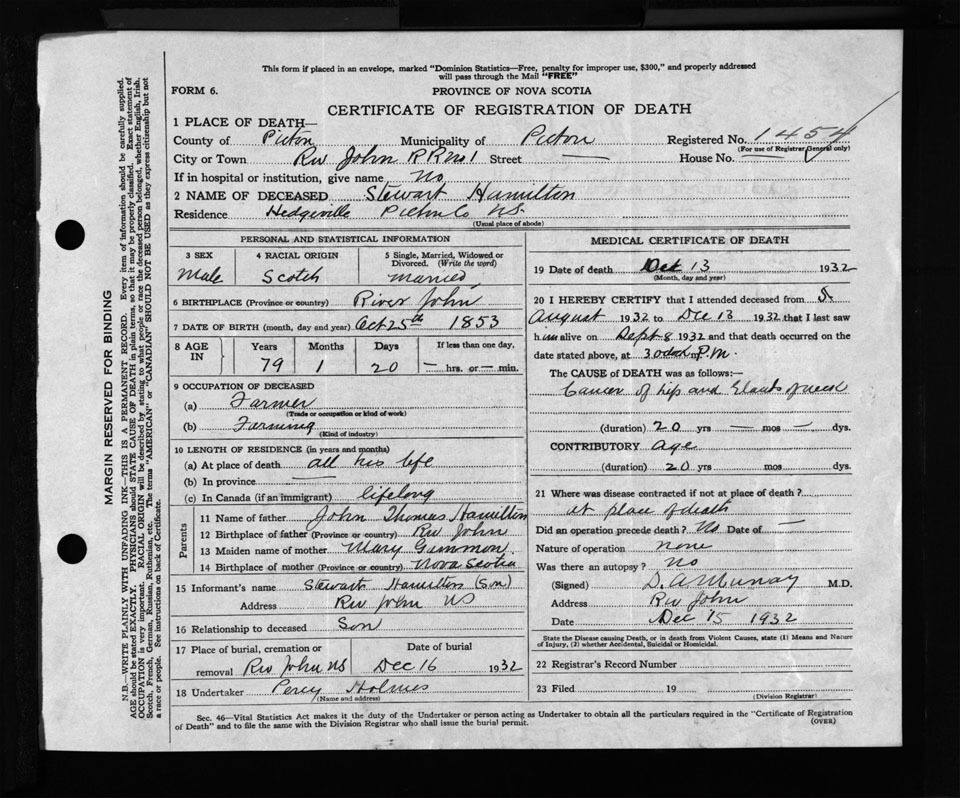 This form if placed in an envelope, marked "Dominion Statistics—Free, penalty for improper use, $300," and properly addressed
will pass through the Mail "FREE"
FORM 6.
PROVINCE OF NOVA SCOTIA
CERTIFICATE OF REGISTRATION OF DEATH
1 PLACE OF DEATH—
County of Pictou Municipality of Pictou Registered No. 1454
(For use of Registrar General only)
City or Town Riv John R R No 1 Street — House No. —
If in hospital or institution, give name no
2 NAME OF DECEASED Stewart Hamilton
Residence Hedgeville Pictou Co NS.
(Usual place of abode)
PERSONAL AND STATISTICAL INFORMATION
3 SEX 4 RACIAL ORIGIN 5 Single, Married, Widowed or
Divorced. (Write the word)
Male Scotch Married
6 BIRTHPLACE (Province or country) River John
7 DATE OF BIRTH (month, day and year) Oct 25th 1853
8 AGE IN Years Months Days If less than one day,
79 1 20 — hrs. or — min.
9 OCCUPATION OF DECEASED
(a) Farmer
(Trade or occupation or kind of work)
(b) Farming
(Kind of industry)
10 LENGTH OF RESIDENCE (in years and months)
(a) At place of death all his life
(b) In province —
(c) In Canada (if an immigrant) lifelong
Parents
11 Name of father John Thomas Hamilton
12 Birthplace of father (Province or country) Riv John
13 Maiden name of mother Mary Gammon
14 Birthplace of mother (Province or country) Nova Scotia
15 Informant's name Stewart Hamilton (Son)
Address Riv John NS
16 Relationship to deceased Son
17 Place of burial, cremation or Date of burial
removal Riv John NS Dec 16 1932
18 Undertaker Percy Holmes
(Name and address)
MEDICAL CERTIFICATE OF DEATH
19 Date of death Dec 13 1932
(Month, day and year)
20 I HEREBY CERTIFY that I attended deceased from
August 1932 to Dec 13 1932 that I last saw
him alive on Sept 8 1932 and that death occurred on the
date stated above, at 3 P.M.
The CAUSE of DEATH was as follows:—
Cancer of lip and Glands of neck
(duration) 20 yrs — mos — dys.
CONTRIBUTORY age
(duration) 20 yrs mos dys.
21 Where was disease contracted if not at place of death?
at place of death
Did an operation precede death? No Date of —
Nature of operation none
Was there an autopsy? no
(Signed) D. A Murray M.D.
Address Riv John
Date Dec 15 1932
State the Disease causing Death, or in death from Violent Causes, state (1) Means and Nature
of Injury, (2) whether Accidental, Suicidal or Homicidal.
22 Registrar's Record Number
23 Filed 19
(Division Registrar)
Sec. 46—Vital Statistics Act makes it the duty of the Undertaker or person acting as Undertaker to obtain all the particulars required in the "Certificate of Registration
of Death" and to file the same with the Division Registrar who shall issue the burial permit.
(OVER)
MARGIN RESERVED FOR BINDING
N.B.—WRITE PLAINLY WITH UNFADING INK—THIS IS A PERMANENT RECORD. Every item of information should be carefully supplied.
AGE should be stated EXACTLY. PHYSICIANS should STATE CAUSE OF DEATH in plain terms, so that it may be properly classified. Exact statement of
OCCUPATION is very important. RACIAL ORIGIN will be described by stating to what people or race the deceased person belonged, whether English, Irish,
Scotch, French, German, Russian, Ruthenian, etc. The terms "AMERICAN" or "CANADIAN" SHOULD NOT BE USED as they express citizenship but not
a race or people. See instructions on back of Certificate.